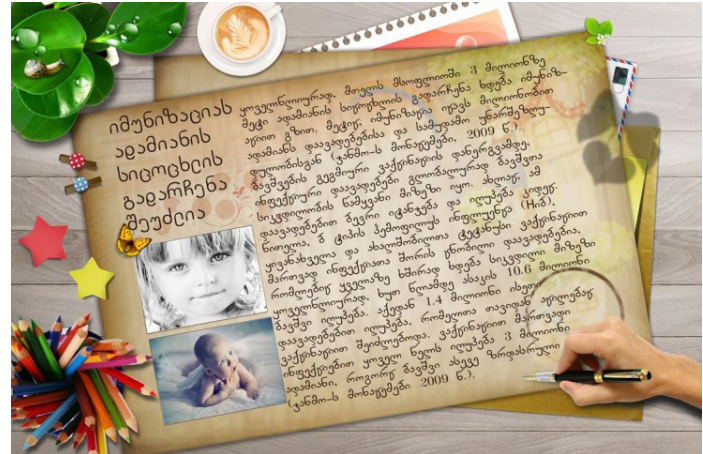 იმუნიზაციას
ადამიანის
სიცოცხლის
გადარჩენა
შეუძლია
ყოველწლიურად, მთელს მსოფლიოში 3 მილიონზე
მეტი ადამიანის სიცოცხლის გადარჩენა ხდება იმუნიზ-
აციით გზით. მეტიც, იმუნიზაცია იცავს მილიონობით
ადამიანს დაავადებებისა და სამუდამო უნარშეზღუ-
დულობისგან (ჯანმო-ს მონაცემები, 2009 წ.).
ბავშვების გეგმიური ვაქცინაციის დანერგვამდე,
ინფექციური დაავადებები გლობალურად ბავშვთა
სიკვდილობის წამყვანი მიზეზი იყო. ახლაც, ამ
დაავადებებით ბევრი იტანჯება და იღუპება კიდეც.
წითელა, ბ ტიპის ჰემოფილუს ინფლუენცა (Hიბ),
ყივანახველა და ახალშობილთა ტეტანუსი ვაქცინაციით
მართვად ინფექციათა შორის ცნობილი დაავადებებია,
რომლებიც ყველაზე ხშირად ხდება სიკვდილი მიზეზი
ყოველწლიურად, ხუთ წლამდე ასაკის 10.6 მილიონი
ბავშვი იღუპება. აქედან 1.4 მილიონი ისეთი
დაავადებებით იღუპება, რომელთა თავიდან აცილებაც
ვაქცინაციით შეიძლებოდა. ვაქცინაციით მართვადი
ინფექციებით ყოველ წელს იღუპება 3 მილიონი
ადამიანი, როგორც ბავშვი ასევე ზრდასრული
(ჯანმო-ს მონაცემები 2009 წ.).